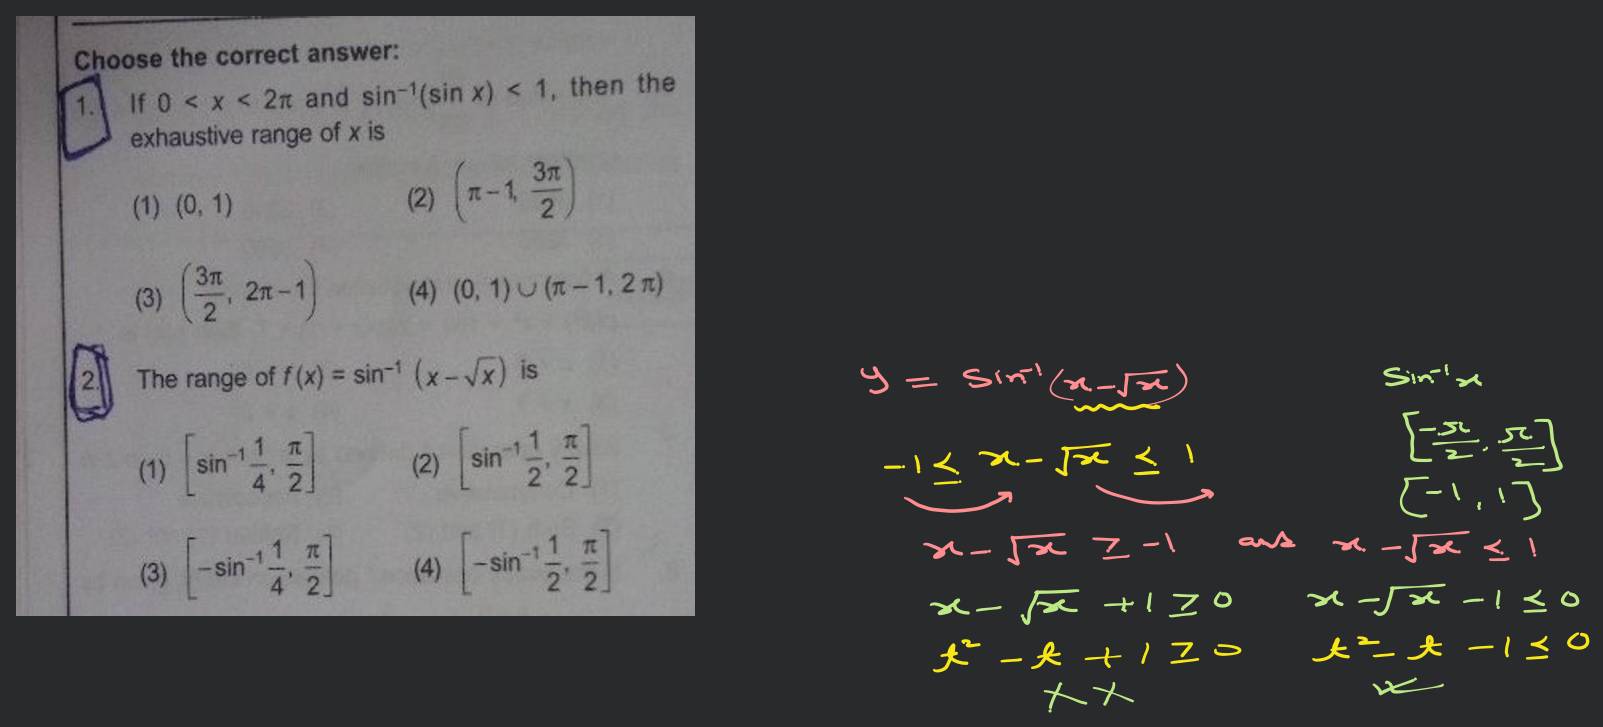 Choose the correct answer:
1. If 0 < x < 2π and sin⁻¹(sin x) < 1, then the
exhaustive range of x is
(1) (0, 1) (2) (π – 1, 3π/2)
(3) (3π/2, 2π – 1) (4) (0, 1) ∪ (π – 1, 2π)
2. The range of f(x) = sin⁻¹ (x – √x) is
(1) [sin⁻¹ 1/4, π/2] (2) [sin⁻¹ 1/2, π/2]
(3) [–sin⁻¹ 1/4, π/2] (4) [–sin⁻¹ 1/2, π/2]
y = sin⁻¹(x-√x)
-1 ≤ x-√x ≤ 1
x-√x ≥ -1 and x-√x ≤ 1
x-√x +1 ≥ 0 x-√x -1 ≤ 0
t² - t + 1 ≥ 0 t² - t - 1 ≤ 0
sin⁻¹x
[-π/2, π/2]
[-1, 1]